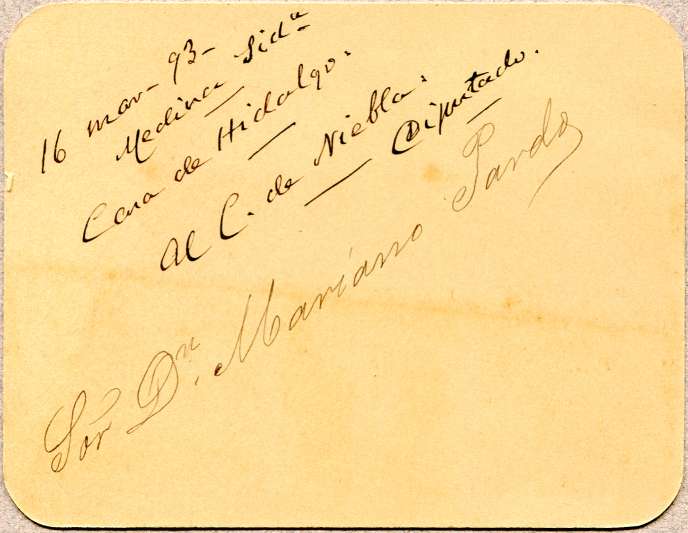 16 mar- 93-
Medina Sidª
Casa de Hidalgo.
Al C. de Niebla.
Diputado.
Sor Dn. Mariano Pardo